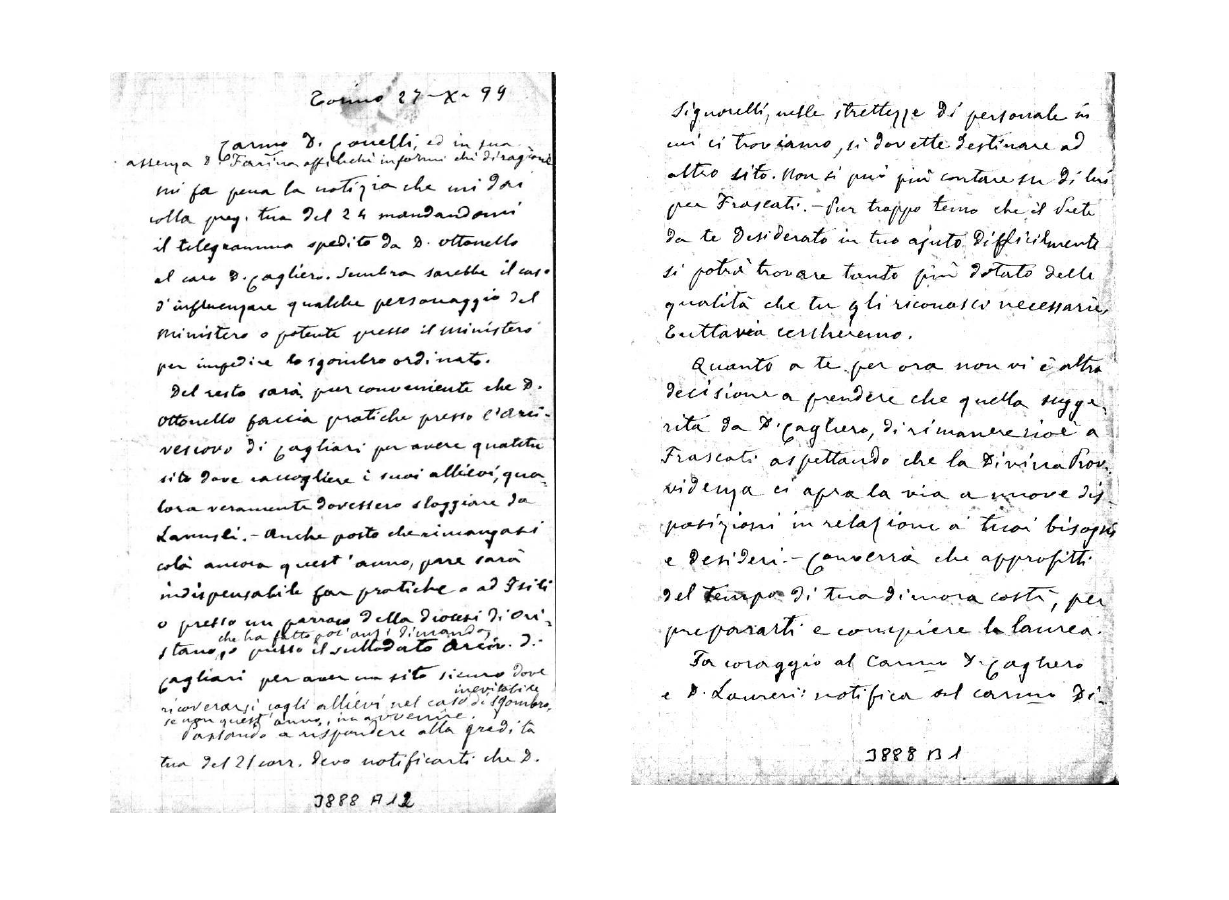 Torino 27-X-99
Carmo D. Conelli, ed in sua
assenza D. Farina affinchè informi chi di ragione
Mi fa pena la notizia che mi dai
colla preg. tua del 24 mandandomi
il telegramma spedito da D. Ottonello
al caro D. Cagliero. Sembra sarebbe il caso
d'influenzare qualche personaggio del
Ministero o potente presso il Ministero
per impedire lo sgombro ordinato.
Del resto sarà pur conveniente che D.
Ottonello faccia pratiche presso l'Arci-
vescovo di Cagliari per avere qualche
sito dove raccogliere i suoi allievi, qua-
lora veramente dovessero sloggiare da
Lanusei. - Anche posto che rimangasi
colà ancora quest'anno, pare sarà
indispensabile far pratiche o ad Isili
o presso un parroco della diocesi di Ori-
che ha fatto pol anzi dimanda,
stano, o presso il sullodato Arciv. di
Cagliari per aver un sito sicuro dove
inevitabile
ricoverarsi cogli allievi nel caso di sgombro,
se non quest'anno, in avvenire.
Passando a rispondere alla gradita
tua del 21 corr. devo notificarti che D.
3888 A 12
Signorelli, nelle strettezze di personale in
cui ci troviamo, si dovette destinare ad
altro sito. Non si può più contare su di lui
per Frascati. - Pur troppo temo che il Prete
da te desiderato in tuo ajuto difficilmente
si potrà trovare tanto più dotato delle
qualità che tu gli riconosci necessarie.
Tuttavia cercheremo.
Quanto a te per ora non vi è altra
decisione a prendere che quella sugge-
rita da D. Cagliero, di rimanere cioè a
Frascati aspettando che la Divina Prov-
videnza ci apra la via a nuove dis-
posizioni in relazione a' tuoi bisogni
e desideri. - Converrà che approfitti
del tempo di tua dimora costì, per
prepararti e compiere la laurea.
Fa coraggio al Carmo D. Cagliero
e D. Laureri: notifica al carmo Di-
3888 B 1